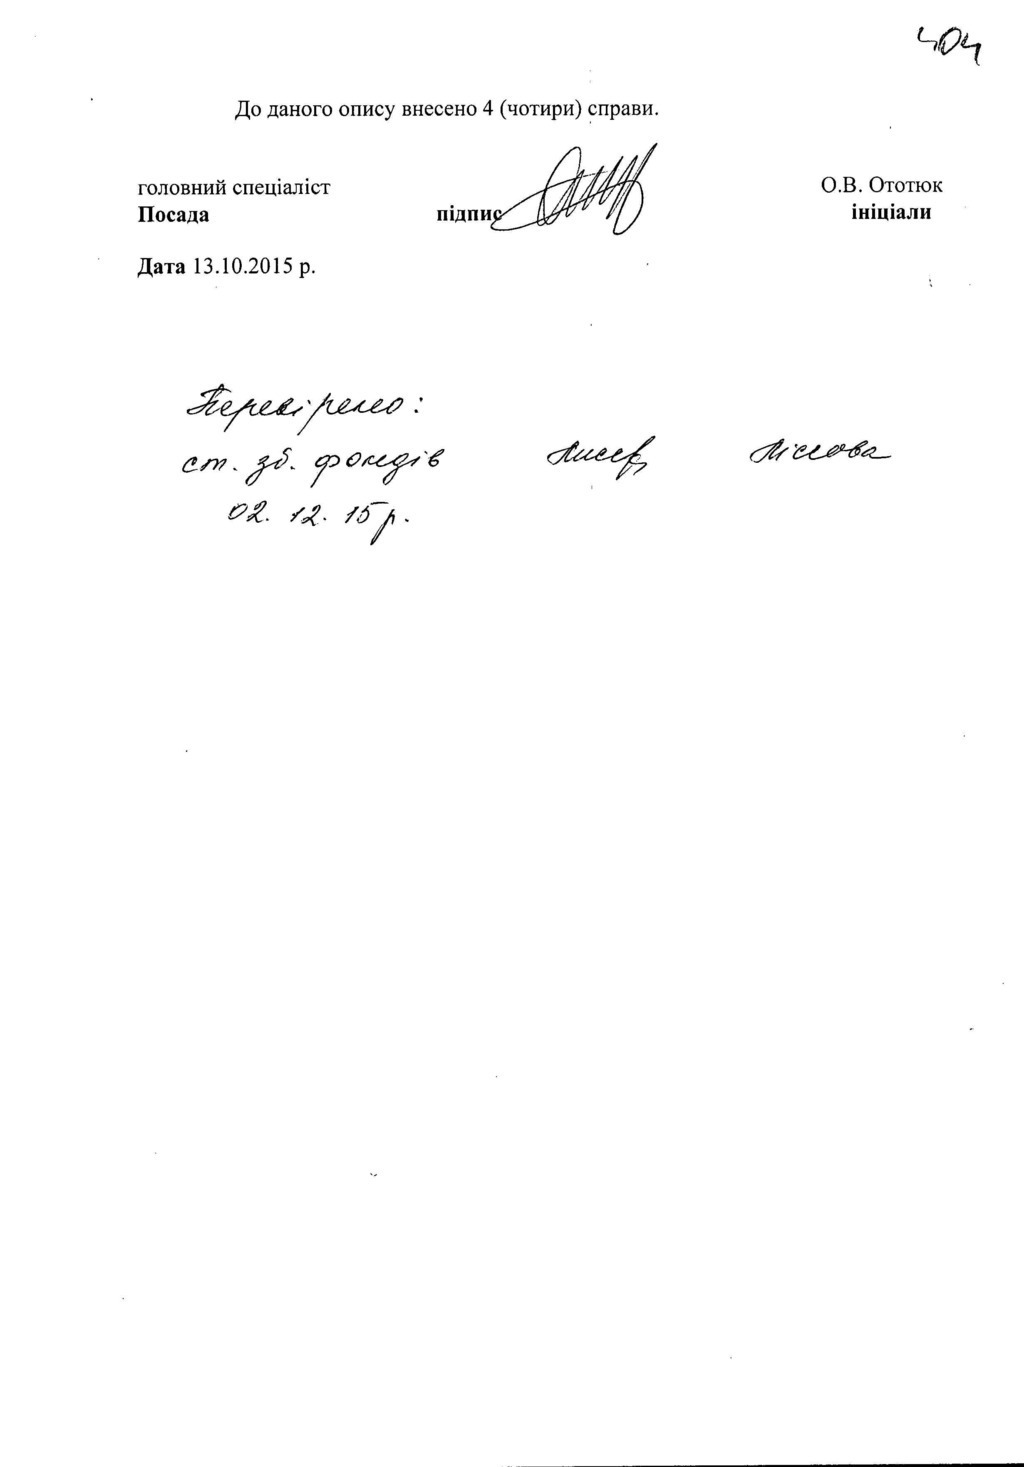 404
До даного опису внесено 4 (чотири) справи.
головний спеціаліст О.В. Ототюк
Посада підпис ініціали
Дата 13.10.2015 р.
Перевірено:
ст. зб. фондів
02. 12. 15 р.